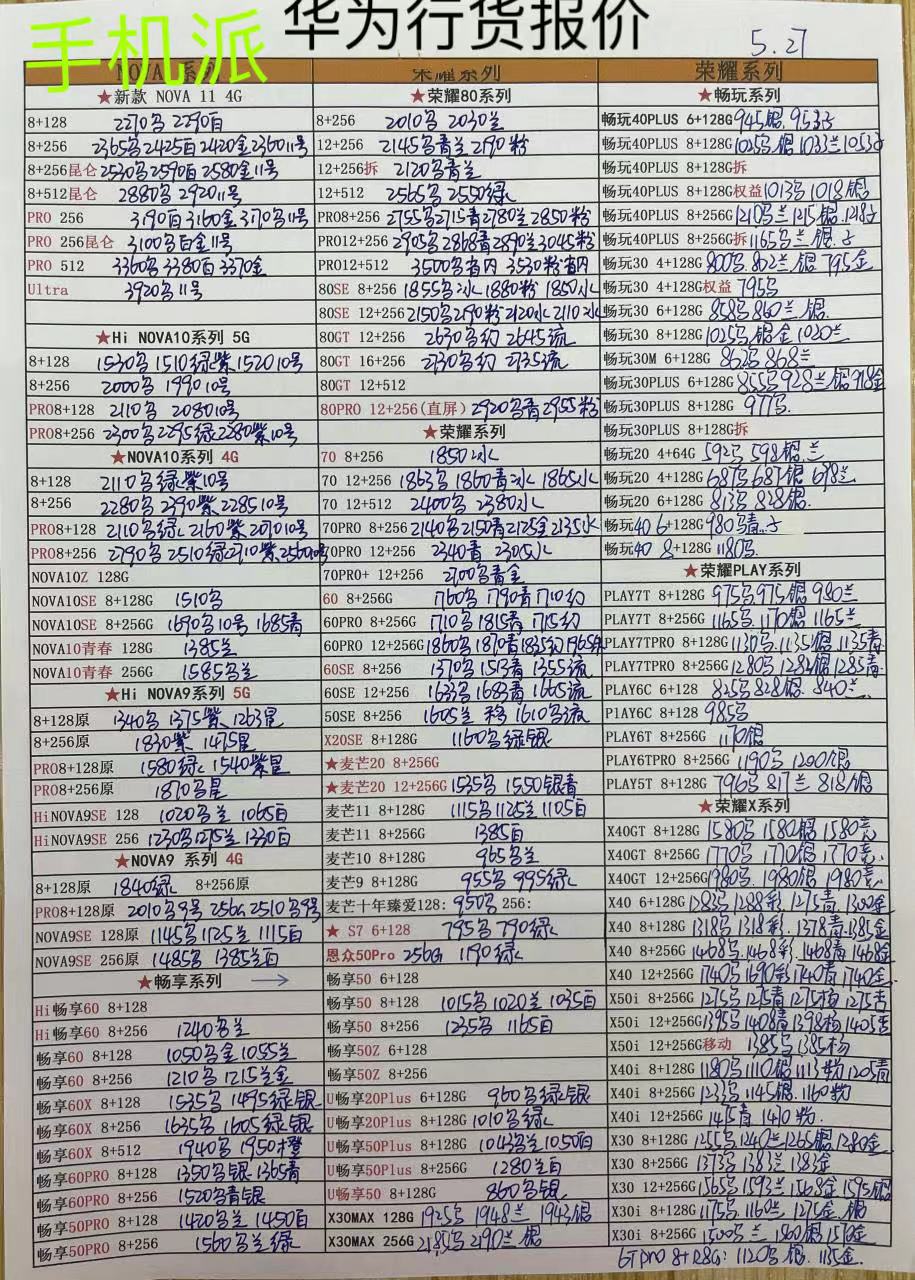 手机派
华为行货报价
5.27
NOVA系列
★新款 NOVA 11 4G
8+128 2270号 2290百
8+256 2365号2425百2420金2360 11号
8+256昆仑 2530号2590百2580金11号
8+512昆仑 2880号 2920 11号
PRO 256 3190百3160金3170号11号
PRO 256昆仑 3100号白金11号
PRO 512 3360号 3380百 3370金
Ultra 3920号11号
★Hi NOVA10系列 5G
8+128 1530号 1510绿紫 1520 10号
8+256 2000号 1990 10号
PRO8+128 2110号 2080 10号
PRO8+256 2300号2295绿2280紫10号
★NOVA10系列 4G
8+128 2110号绿紫10号
8+256 2280号 2290紫 2285 10号
PRO8+128 2110号绿 2160紫 2070 10号
PRO8+256 2790号 2510绿2710紫2560 10号
NOVA10Z 128G
NOVA10SE 8+128G 1510号
NOVA10SE 8+256G 1690号10号 1685青
NOVA10青春 128G 1385兰
NOVA10青春 256G 1585号兰
★Hi NOVA9系列 5G
8+128原 1340号 1375紫 1263星
8+256原 1830紫 1475星
PRO8+128原 1580绿 1540紫星
PRO8+256原 1870号星
HiNOVA9SE 128 1020号兰 1065百
HiNOVA9SE 256 1230号1275兰 1330百
★NOVA9 系列 4G
8+128原 1840绿 8+256原
PRO8+128原 2010号9号 256G 2510号9号
NOVA9SE 128原 1145号1125兰 1115百
NOVA9SE 256原 1485号 1385兰百
★畅享系列 →
Hi畅享60 8+128
Hi畅享60 8+256 1240号兰
畅享60 8+128 1050号金1055兰
畅享60 8+256 1210号1215兰金
畅享60X 8+128 1535号 1495绿银
畅享60X 8+256 1635号 1605绿银
畅享60X 8+512 1940号 1950橙
畅享60PRO 8+128 1350号银1365青
畅享60PRO 8+256 1520号青银
畅享50PRO 8+128 1420号兰 1450百
畅享50PRO 8+256 1560号兰绿
荣耀系列
★荣耀80系列
8+256 2010号 2030兰
12+256 2145号青兰 2190粉
12+256拆 2120号青兰
12+512 2565号 2550绿
PRO8+256 2755号2715青2780兰2850粉
PRO12+256 2905号2868青2890兰3045粉
PRO12+512 3500号省内 3530粉省内
80SE 8+256 1855号冰1880粉 1850冰
80SE 12+256 2150号2190粉2120水2110冰
80GT 12+256 2630号约 2645流
80GT 16+256 2730号约 2735流
80GT 12+512
80PRO 12+256(直屏) 2920号青2955粉
★荣耀系列
70 8+256 1850冰
70 12+256 1863号 1860青冰 1865水
70 12+512 2400号 2380水
70PRO 8+256 2140号2150青2125金2135水
70PRO 12+256 2340青 2305水
70PRO+ 12+256 2700号青金
60 8+256G 1760号 1790青1710约
60PRO 8+256G 1710号1815青 1715约
60PRO 12+256G 1860号1870青1835约1965体
60SE 8+256 1370号 1513青 1355流
60SE 12+256 1633号 1683青 1665流
50SE 8+256 1605兰 移 1610号流
X20SE 8+128G 1160号绿银
★麦芒20 8+256G
★麦芒20 12+256G 1535号 1550银青
麦芒11 8+128G 1115号1125兰1105百
麦芒11 8+256G 1385百
麦芒10 8+128G 965号兰
麦芒9 8+128G 955号 995绿
麦芒十年臻爱128: 950号 256:
★ S7 6+128 795号 790绿
恩众50Pro 256G 1190绿
畅享50 6+128
畅享50 8+128 1015号1020兰1035百
畅享50 8+256 1235号 1165百
畅享50Z 6+128
畅享50Z 8+256
U畅享20Plus 6+128G 960号绿银
U畅享20Plus 8+128G 1010号绿
U畅享50Plus 8+128G 1043号兰1050百
U畅享50Plus 8+256G 1280兰百
U畅享50 8+128G 860号银
X30MAX 128G 1925号 1948兰 1943银
X30MAX 256G 2185号2190兰 银
荣耀系列
★畅玩系列
畅玩40PLUS 6+128G 945银.953子
畅玩40PLUS 8+128G 1025号.银 1033兰 1053子
畅玩40PLUS 8+128G拆
畅玩40PLUS 8+128G权益 1013号 1018银
畅玩40PLUS 8+256G 1210号兰1215银.1218子
畅玩40PLUS 8+256G拆 1165号兰 银.子
畅玩30 4+128G 800号.802兰 银 795金
畅玩30 4+128G权益 795号
畅玩30 6+128G 858号 860兰.银.
畅玩30 8+128G 1025号 银金 1020兰
畅玩30M 6+128G 862号 868兰
畅玩30PLUS 6+128G 855号928兰 银918金
畅玩30PLUS 8+128G 977号.
畅玩30PLUS 8+128G拆
畅玩20 4+64G 592号 598银.兰
畅玩20 4+128G 687号687银 698兰
畅玩20 6+128G 813号 828银.
畅玩40 6+128G 980号青.子
畅玩40 8+128G 1180号.
★荣耀PLAY系列
PLAY7T 8+128G 975号975银 980兰
PLAY7T 8+256G 1165号 1170银 1165兰
PLAY7TPRO 8+128G 1130号.1135银 1135青
PLAY7TPRO 8+256G 1280号 1282银1285青.
PLAY6C 6+128 825号828银.840兰.
PlAY6C 8+128 985号
PLAY6T 8+256G 1170银
PLAY6TPRO 8+256G 1190号 1200银
PLAY5T 8+128G 796号 817兰 818银
★荣耀X系列
X40GT 8+128G 1580号 1580银 1580竞
X40GT 8+256G 1770号 1770银 1770竞.
X40GT 12+256G 1980号. 1980银 1980竞
X40 6+128G 1283号 1288彩 1275青.1300金
X40 8+128G 1318号 1318彩.1378青.1385金
X40 8+256G 1468号.1468彩 1468青1468金
X40 12+256G 1740号1690彩1740青1740金
X50i 8+256G 1275号1275青1275杨1275青
X50i 12+256G 1395号1408青1398杨1405青
X50i 12+256G移动 1385号1385杨
X40i 8+128G 1180号1110银1113粉1205青
X40i 8+256G 1233号1145银.1160粉
X40i 12+256G 1415青1410粉.
X30 8+128G 1255号1240兰1265银1280金
X30 8+256G 1373号 1383兰 1383金
X30 12+256G 1565号1593兰1568金1595银
X30i 8+128G 1175号 1160兰 1275金 银
X30i 8+256G 1500号兰 1560银 1570金
6T pro 8+128G: 1120号 银. 1135金.